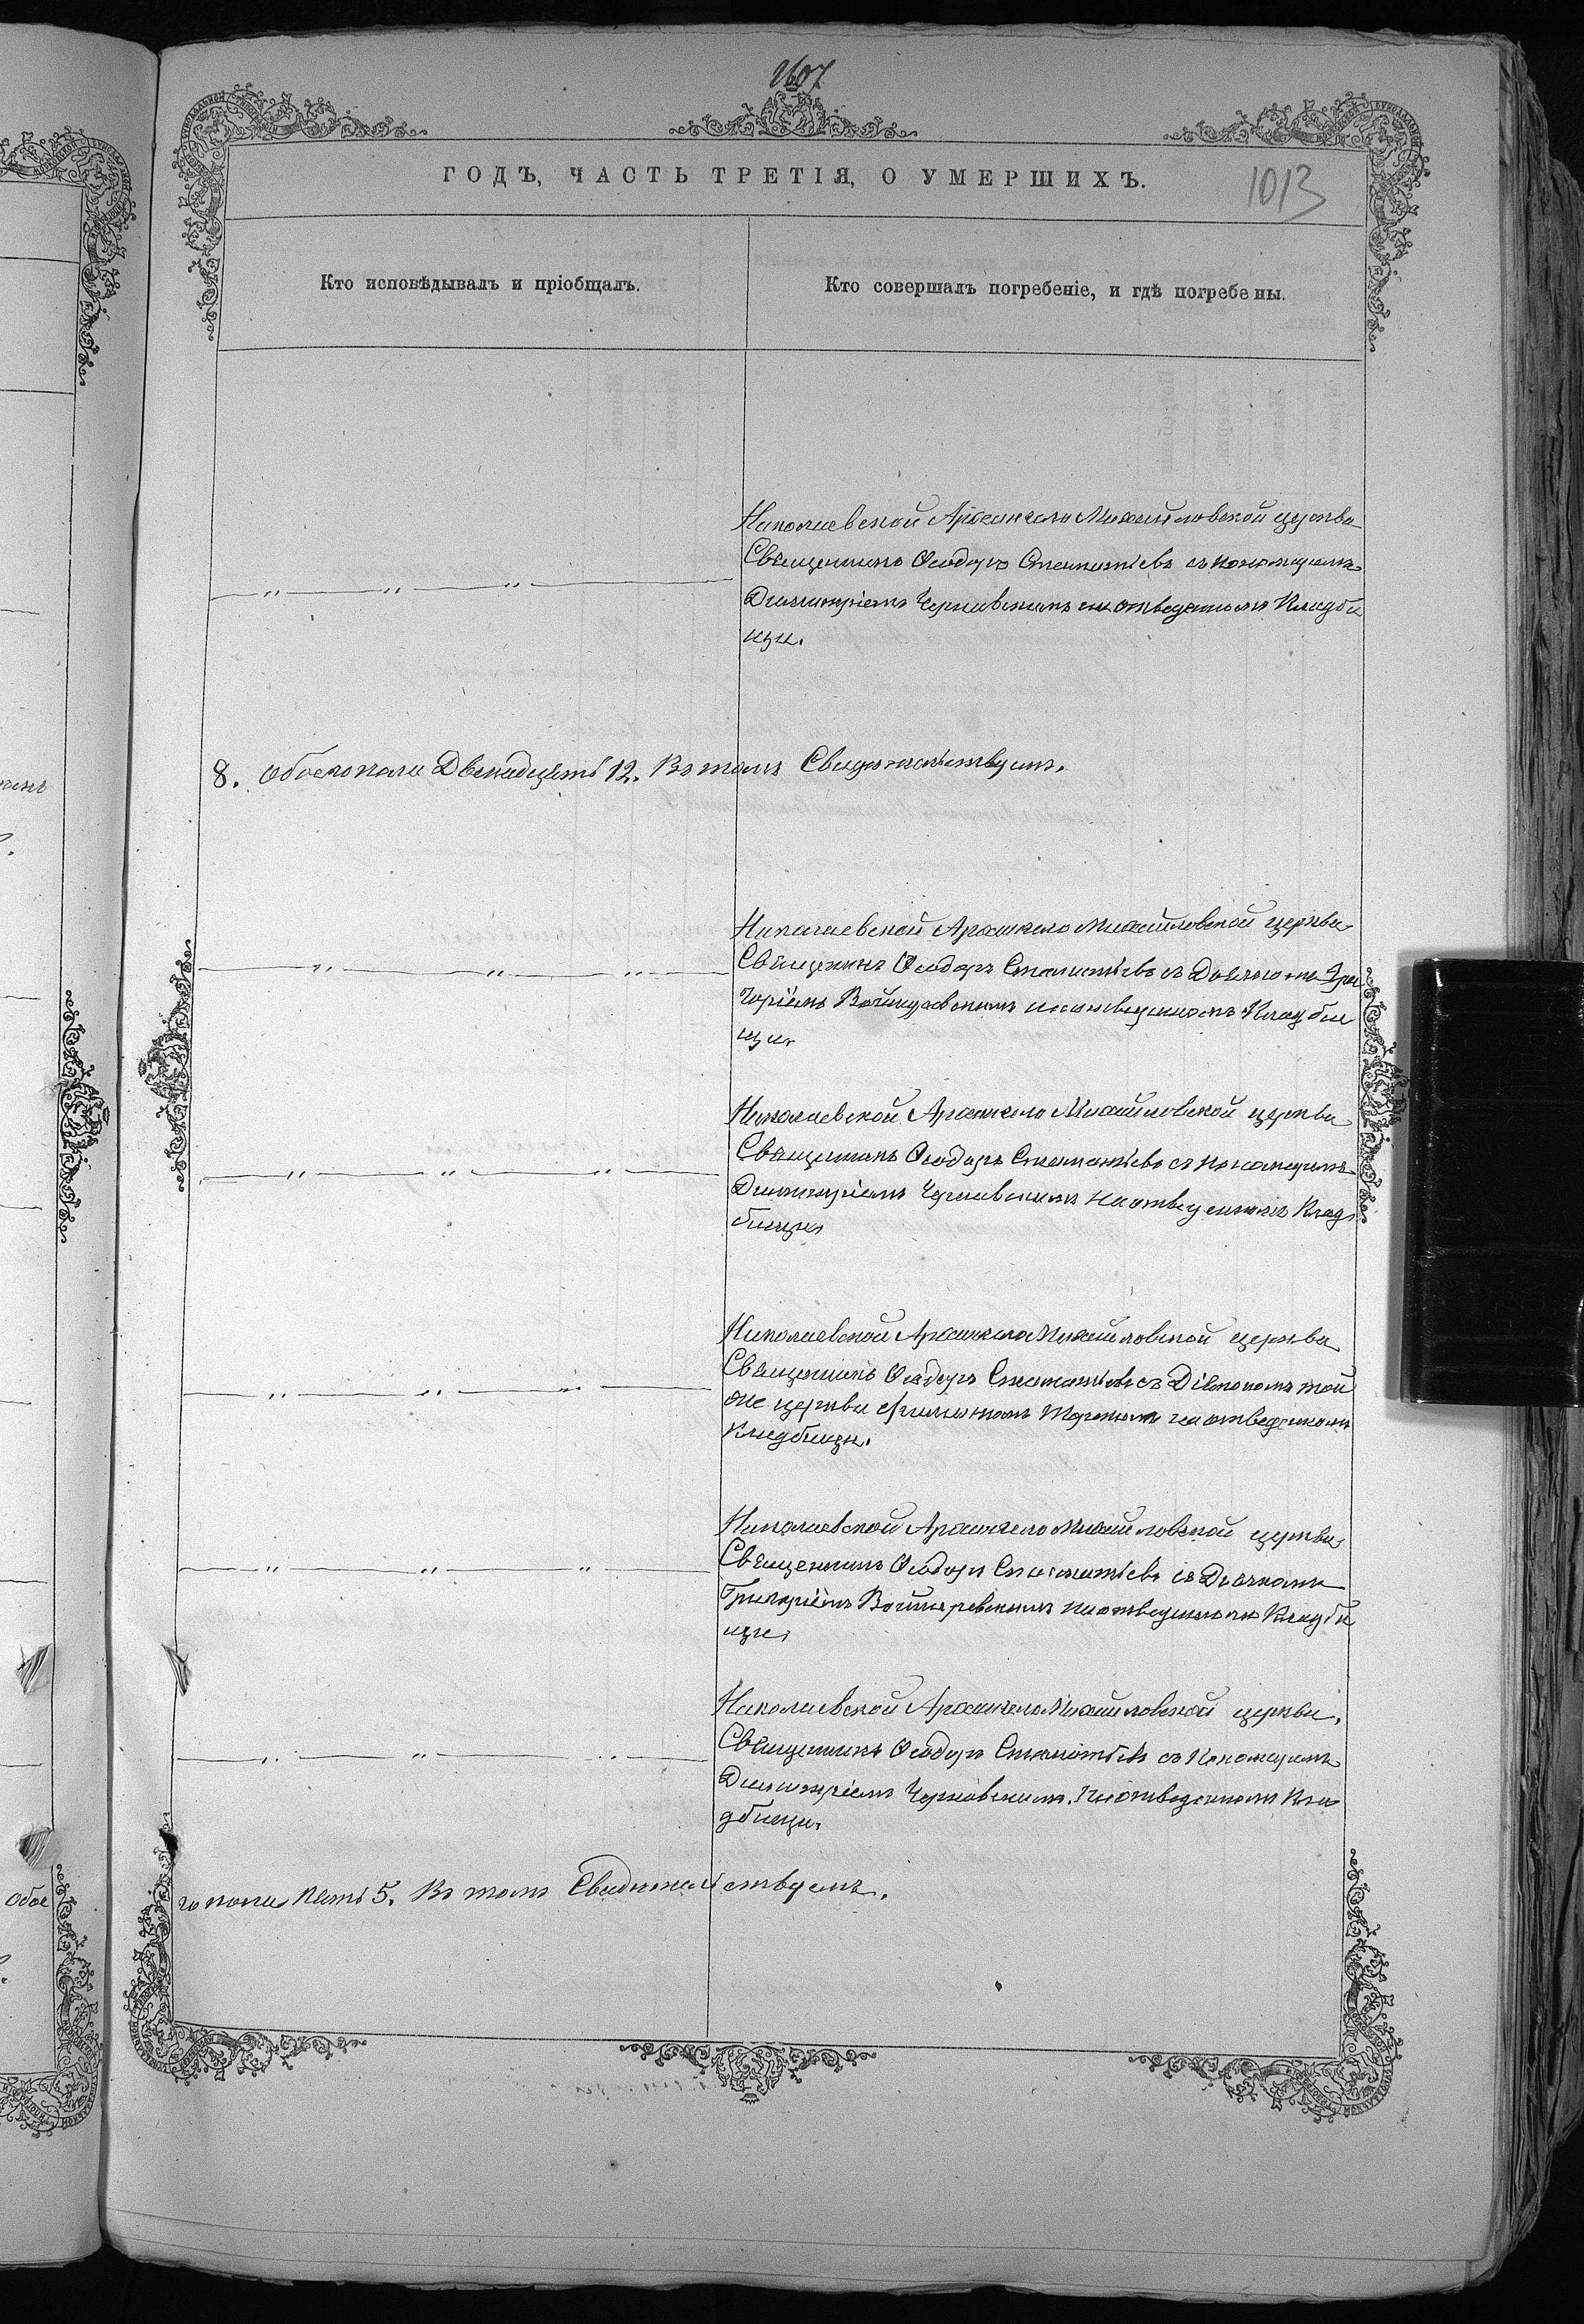 2607
ГОДЪ, ЧАСТЬ ТРЕТІЯ, О УМЕРШИХЪ.
1013
Кто исповѣдывалъ и пріобщалъ.
Кто совершалъ погребеніе, и гдѣ погребены.
Николаевской Архангело Михайловской церкви
Священникъ Ѳеодоръ Стаматіевъ съ пономаремъ
Димитріемъ Чернавскимъ на отведенномъ Кладби
щи.
8. обоего пола Двенадцать 12. Въ томъ Свидетельствуемъ.
Николаевской Архангело Михайловской церкви
Священникъ Ѳеодоръ Стаматіевъ съ Дьячкомъ Гри
горіемъ на отведенномъ Кладби
щи.
Николаевской Архангело Михайловской церкви
Священникъ Ѳеодоръ Стаматіевъ съ пономаремъ
Димитріемъ Чернавскимъ на отведенномъ Клад
бищи
Николаевской Архангело Михайловской церкви
Священникъ Ѳеодоръ Стаматіевъ съ Діакономъ той
же церкви на отведенномъ
Кладбищи.
Николаевской Архангело Михайловской церкви
Священникъ Ѳеодоръ Стаматіевъ съ Дьячкомъ
Григоріемъ на отведенномъ Кладби
щи
Николаевской Архангело Михайловской церкви,
Священникъ Ѳеодоръ Стаматіевъ съ Пономаремъ
Димитріемъ Чернавскимъ. на отведенномъ Кла
дбищи.
обое
го пола Пять 5. Въ томъ Свидетельствуемъ.